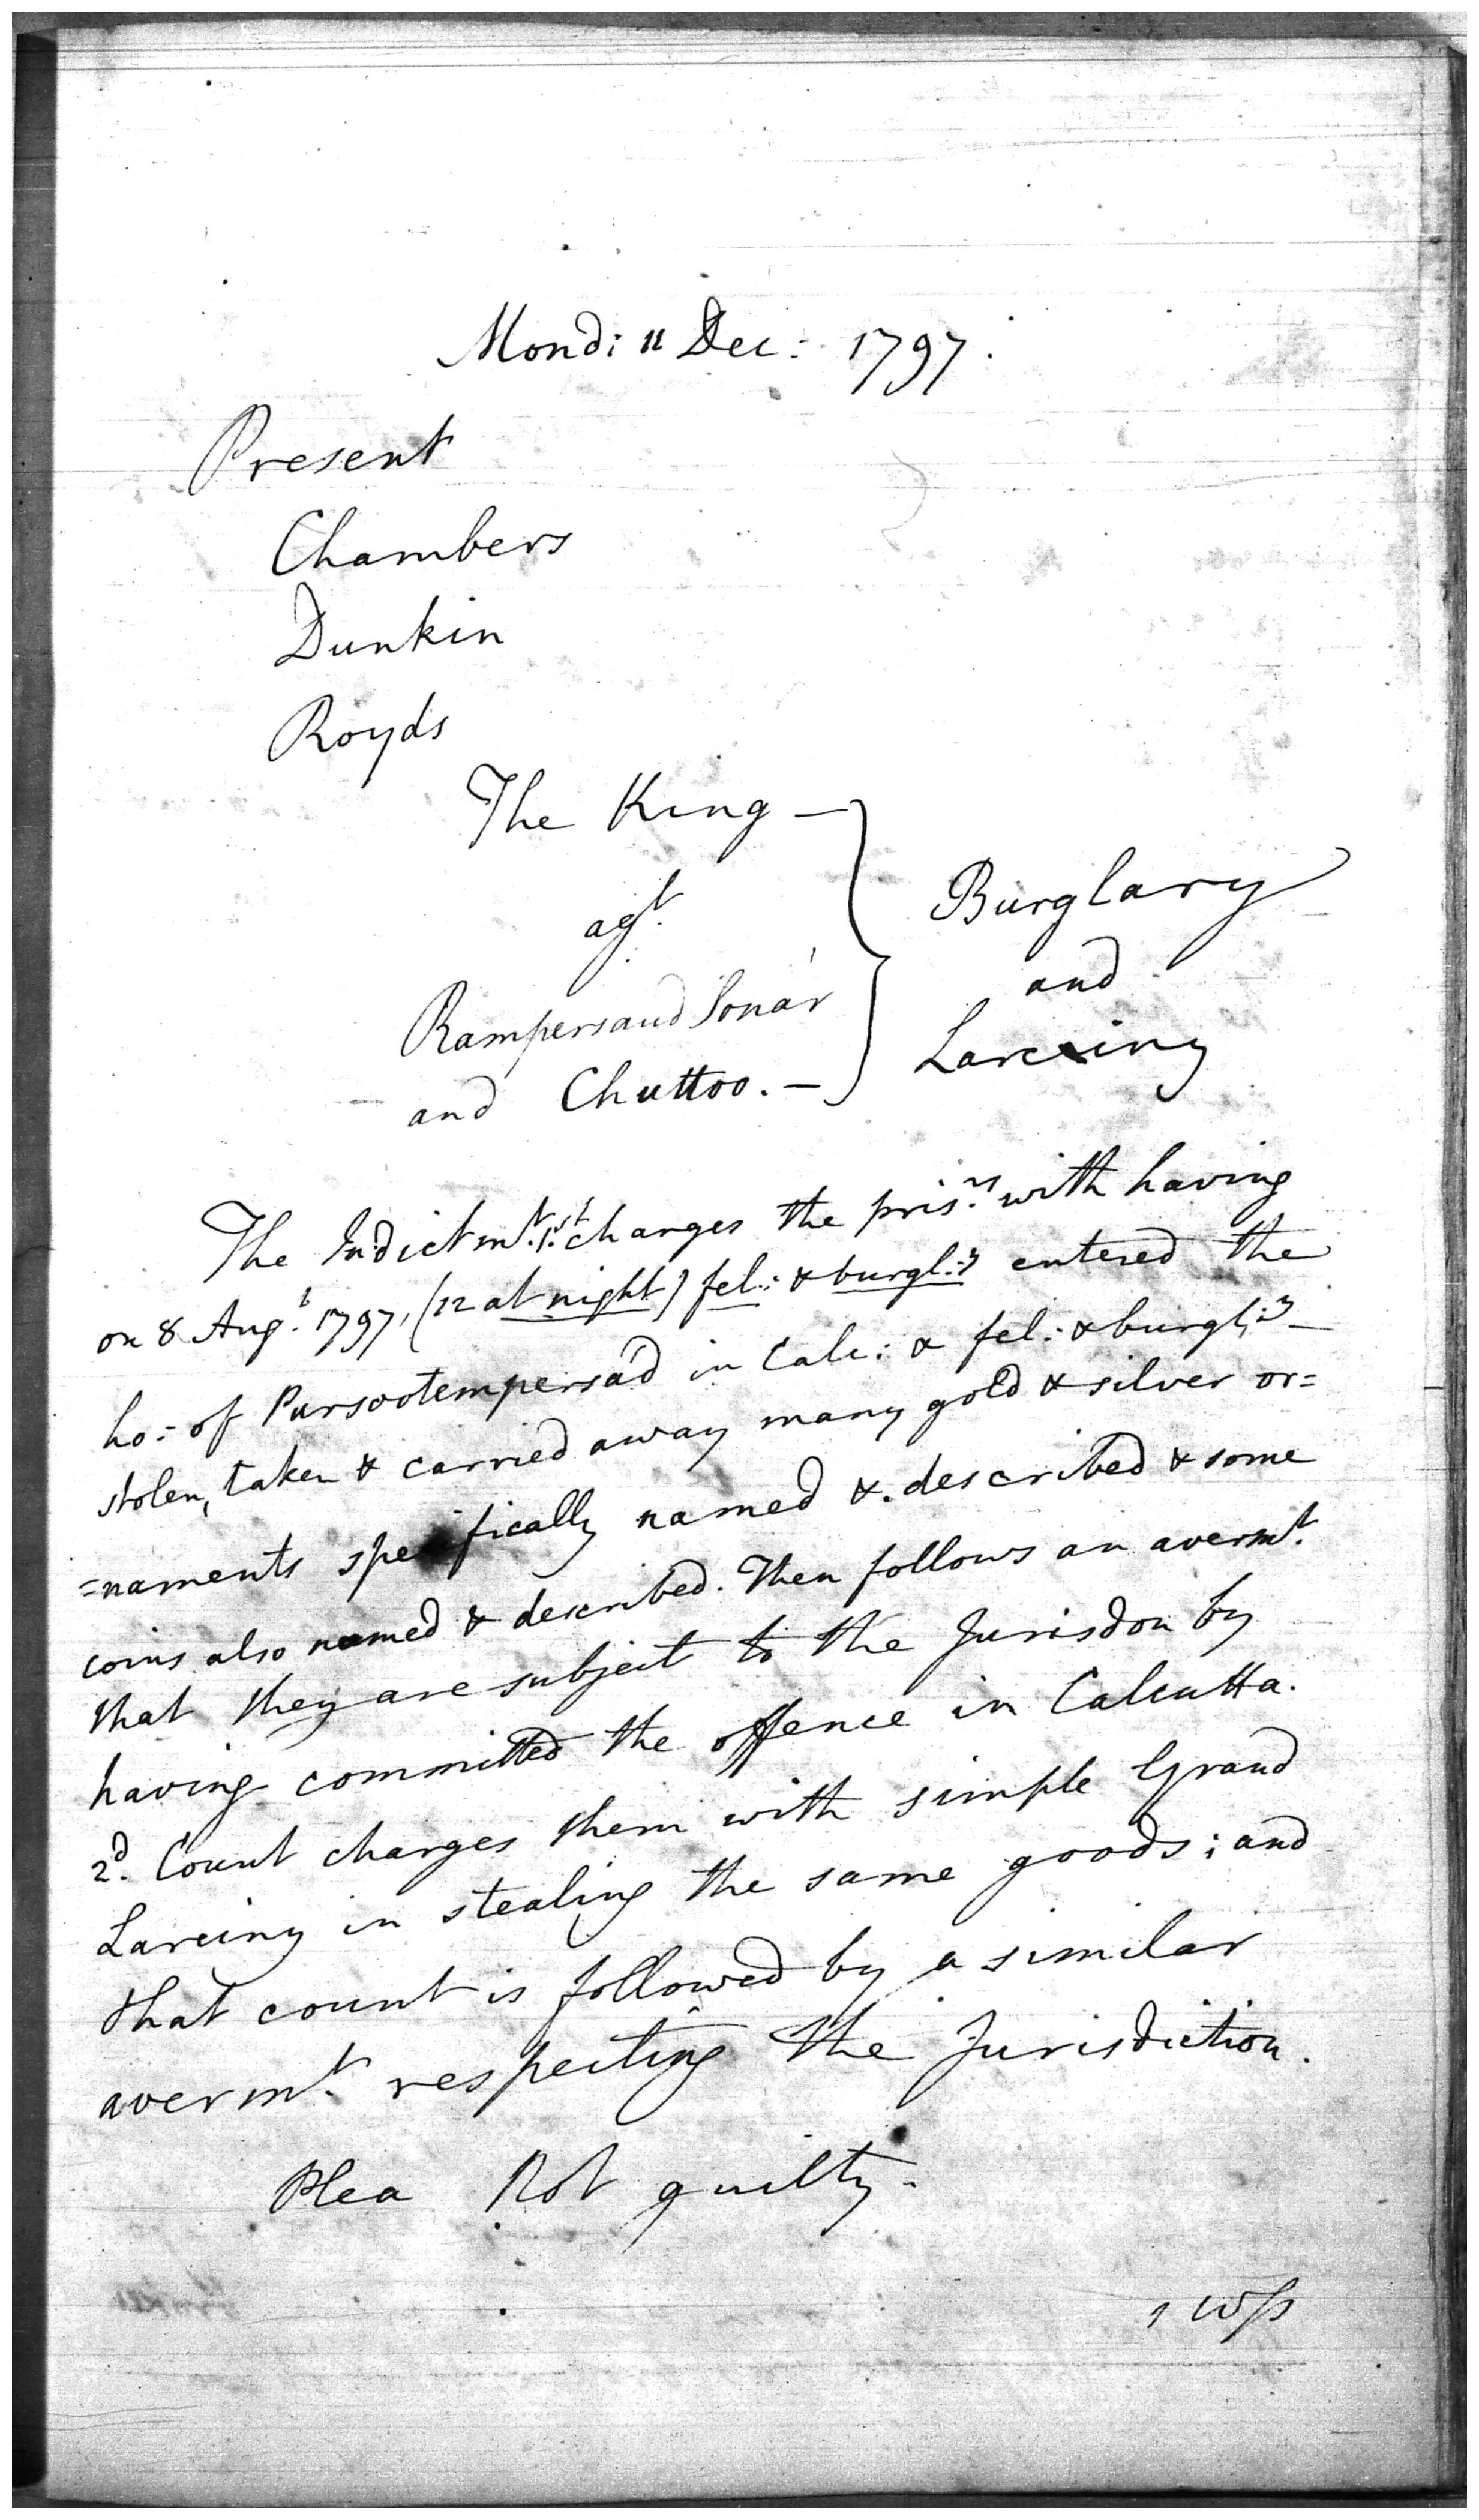 Mond: 11 Dec: 1797.
Present
Chambers
Dunkin
Royds
The King —
agt.
Rampersaud Sonár
and Chuttoo. —
Burglary
and
Larciny
The Indictmt. 1st. charges the prisrs. with having
on 8 Augt. 1797, (12 at night) fel: & burgl:y entered the
ho: of Pursootempersád in Calc: & fel: & burgl:y —
stolen, taken & carried away many gold & silver or=
=naments specifically named & described & some
coins also named & described. Then follows an avermt.
that they are subject to the Jurisdon by
having committed the offence in Calcutta.
2d. Count charges them with simple Grand
Larciny in stealing the same goods; and
that count is followed by a similar
avermt. respecting the Jurisdiction.
Plea Not guilty.
1 Wss